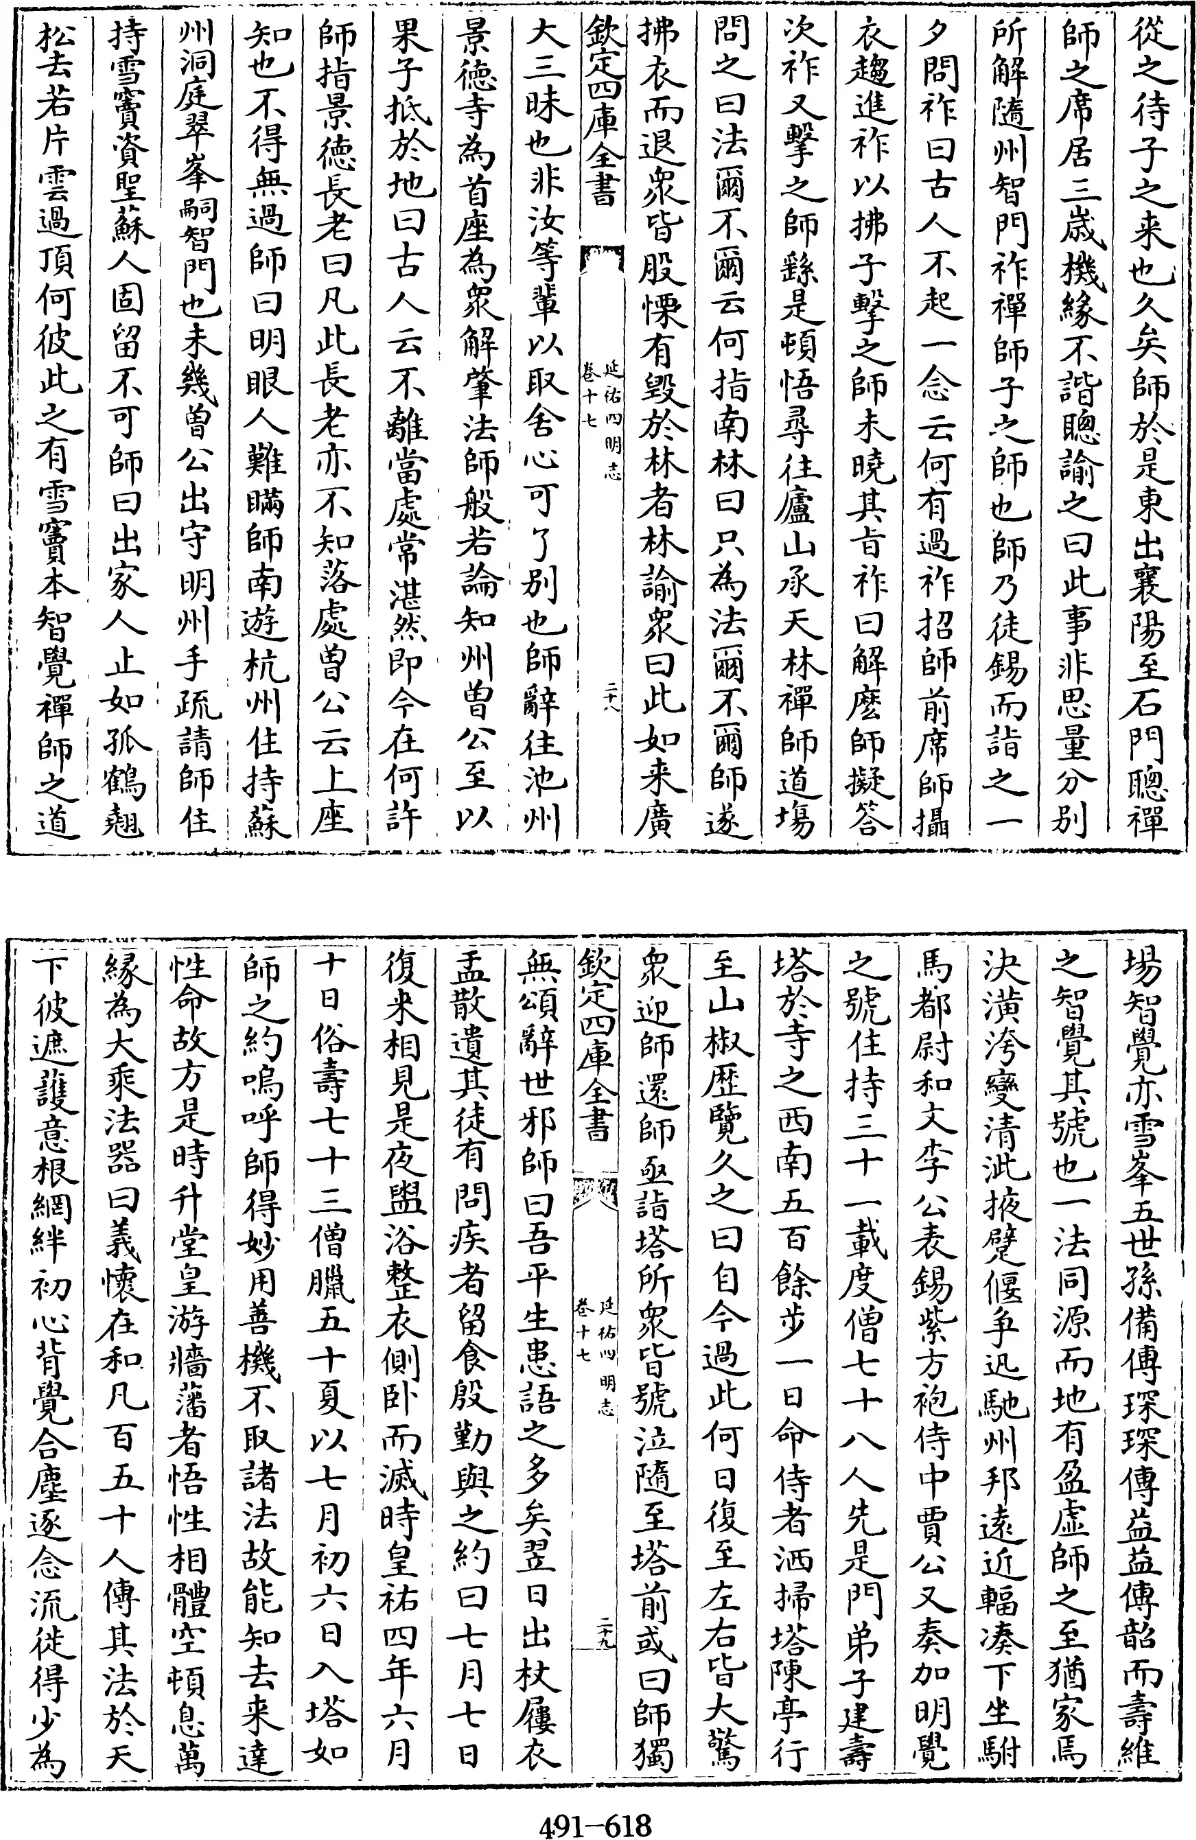 從之待子之来也久矣師於是東出襄陽至石門聰禪
師之席居三歳機緣不諧聰諭之曰此事非思量分别
所解隨州智門祚禪師子之師也師乃徒錫而詣之一
夕問祚曰古人不起一念云何有過祚招師前席師攝
衣趨進祚以拂子擊之師未曉其旨祚曰解麽師擬答
次祚又擊之師繇是頓悟尋往廬山承天林禪師道塲
問之曰法爾不爾云何指南林曰只為法爾不爾師遂
拂衣而退衆皆股慄有毀於林者林諭衆曰此如来廣
欽定四庫全書
延祐四明志
卷十七
二十八
大三昧也非汝等輩以取舍心可了别也師辭往池州
景德寺為首座為衆解肇法師般若論知州曾公至以
果子抵於地曰古人云不離當處常湛然即今在何許
師指景德長老曰凡此長老亦不知落處曾公云上座
知也不得無過師曰明眼人難瞞師南遊杭州住持蘇
州洞庭翠峯嗣智門也未幾曾公出守明州手疏請師住
持雪竇資聖蘇人固留不可師曰出家人止如孤鶴翹
松去若片雲過頂何彼此之有雪竇本智覺禪師之道
塲智覺亦雪峯五世孫備傳琛琛傳益益傳韶而壽維
之智覺其號也一法同源而地有盈虚師之至猶家焉
決潢洿變清泚掖躄偃争迅馳州邦遠近輻凑下坐駙
馬都尉和文李公表錫紫方袍侍中賈公又奏加明覺
之號住持三十一載度僧七十八人先是門弟子建壽
塔於寺之西南五百餘步一日命侍者洒掃塔陳亭行
至山椒歴覽久之曰自今過此何日復至左右皆大驚
衆迎師還師亟詣塔所衆皆號泣隨至塔前或曰師獨
欽定四庫全書
延祐四明志
卷十七
二十九
無頌辭世邪師曰吾平生患語之多矣翌日出杖屨衣
盂散遺其徒有問疾者留食殷勤與之約曰七月七日
復来相見是夜盥浴整衣側卧而滅時皇祐四年六月
十日俗壽七十三僧臘五十夏以七月初六日入塔如
師之約嗚呼師得妙用善機不取諸法故能知去来達
性命故方是時升堂皇游牆藩者悟性相體空頓息萬
緣為大乘法器曰義懷在和凡百五十人傳其法於天
下彼遮護意根網絆初心背覺合塵逐念流徙得少為
491-618